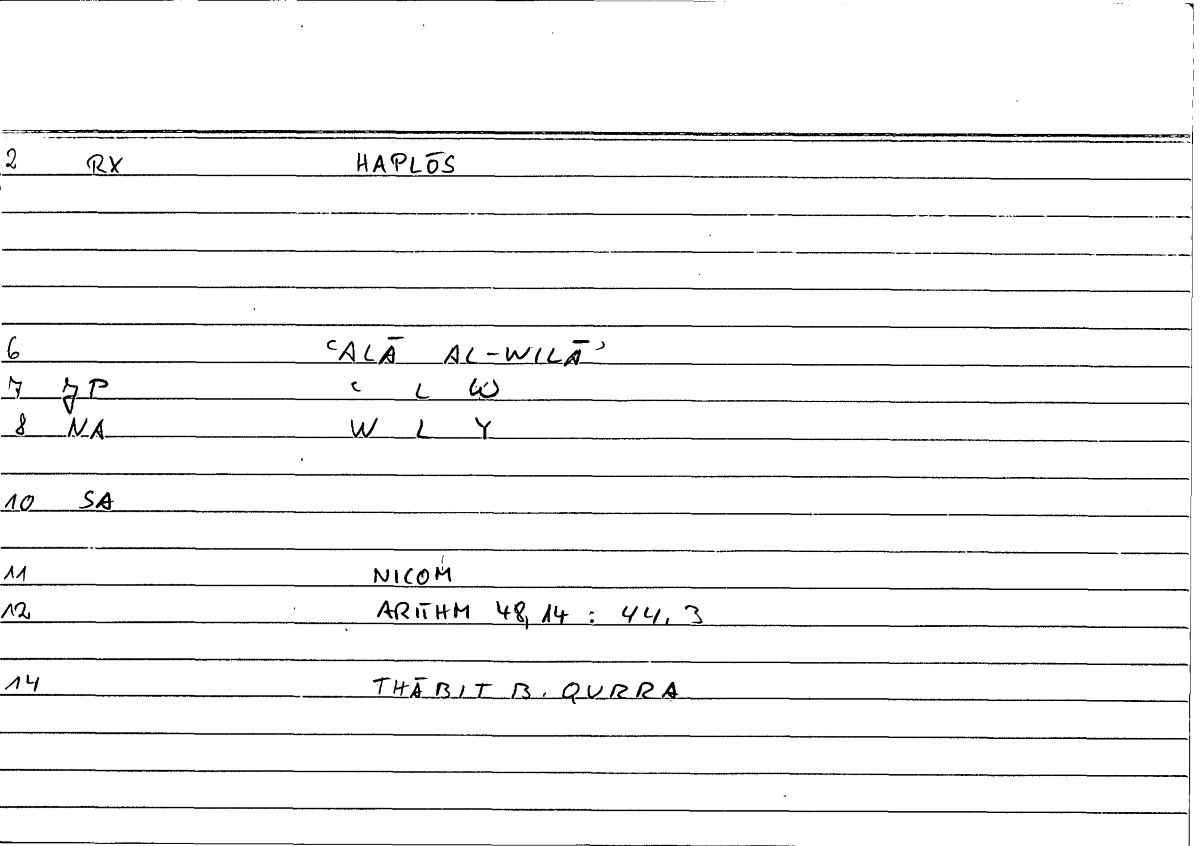 2 RX HAPLŌS
6 ʿALĀ AL-WILĀʾ
7 JP ʿ L W
8 NA W L Y
10 SA
11 NICOM
12 ARITHM 48,14 : 44.3
14 THĀBIT B. QURRA